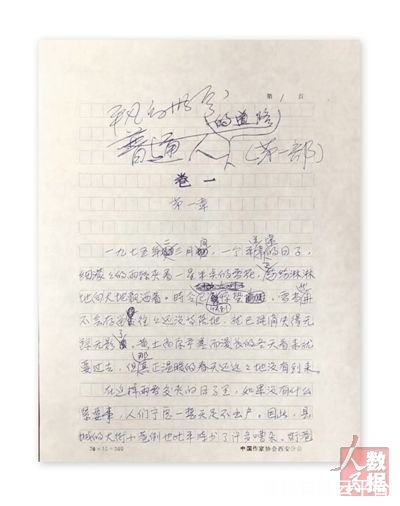 第 1 页
平凡的世界
普通人的道路
(第一部)
卷一
第一章
一九七五年二、三月间，一个平平常常的日子，
细濛濛的雨丝夹着一星半点的雪花，正纷纷淋淋
地向大地飘洒着。时令已快到惊蛰，雪当然再
不会存留，往往还没等落地，就已经消失得无
踪无影了。黄土高原严寒而漫长的冬天看来就
要过去，但那真正温暖的春天还远远地没有到来。
在这样雨雪交加的日子里，如果没有什么
紧要事，人们宁愿一整天足不出户。因此，县
城的大街小巷倒也比平时少了许多嘈杂。街巷
20×15=300
中国作家协会西安分会
人民数据